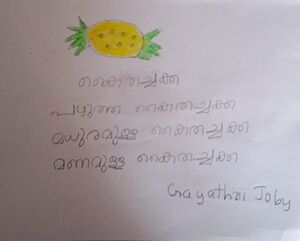 കൈതച്ചക്ക
പഴുത്ത കൈതച്ചക്ക
മധുരമുള്ള കൈതച്ചക്ക
മണമുള്ള കൈതച്ചക്ക
Gayathri Joby